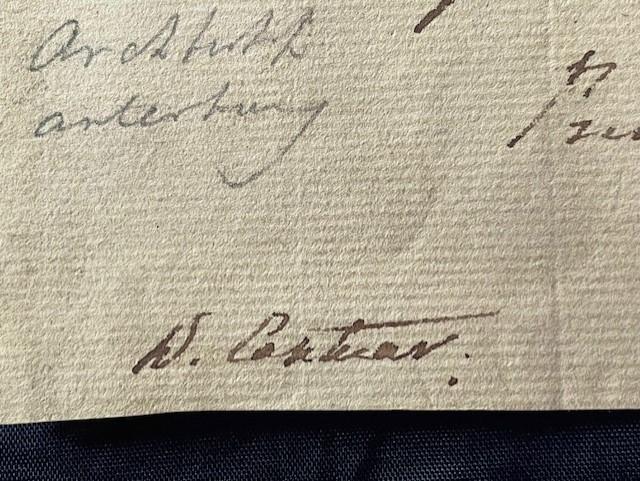 Archbish
anterbury
W. Cantuar.